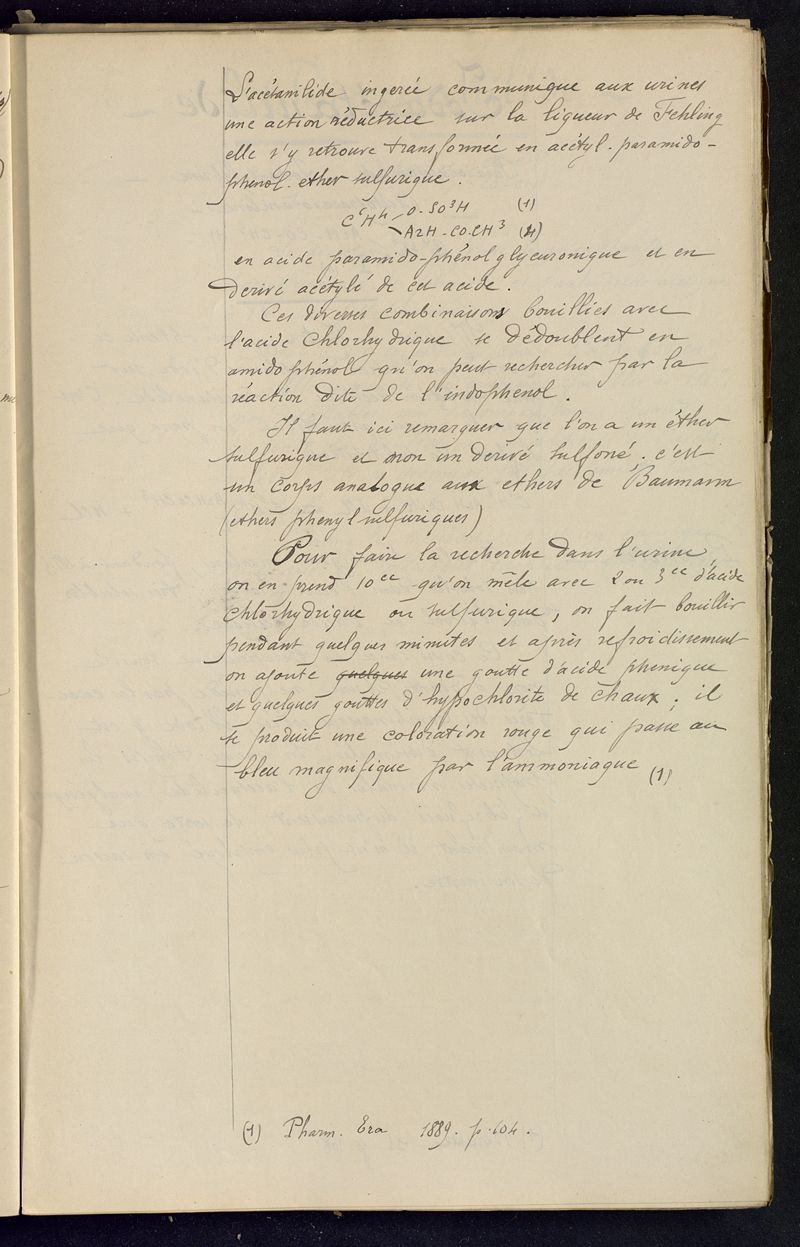 L'acétanilide ingerée communique aux urines
une action réductrice sur la liqueur de Fehling
elle s'y retrouve transformée en acétyl-paramido-
phenol-ether sulfurique.
C⁶H⁴ O-SO³H (1)
AzH-CO-CH³ (4)
en acide paramido-phénol glycuronique et en
derivé acétylé de cet acide.
Ces diverses combinaisons bouillies avec
l'acide chlorhydrique se dédoublent en
amido phénol qu'on peut rechercher par la
réaction dite de l'indophenol.
Il faut ici remarquer que l'on a un éther
sulfurique et non un derivé sulfoné. c'est
un corps analogue aux ethers de Baumann
(ethers phenyl sulfuriques)
Pour faire la recherche dans l'urine,
on en prend 10cc qu'on mêle avec 2 ou 3cc d'acide
chlorhydrique ou sulfurique, on fait bouillir
pendant quelques minutes et après refroidissement
on ajoute quelques une goutte d'acide phenique
et quelques gouttes d'hypochlorite de chaux; il
se produit une coloration rouge qui passe au
bleu magnifique par l'ammoniaque (1)
(1) Pharm. Era 1889. p. 104.